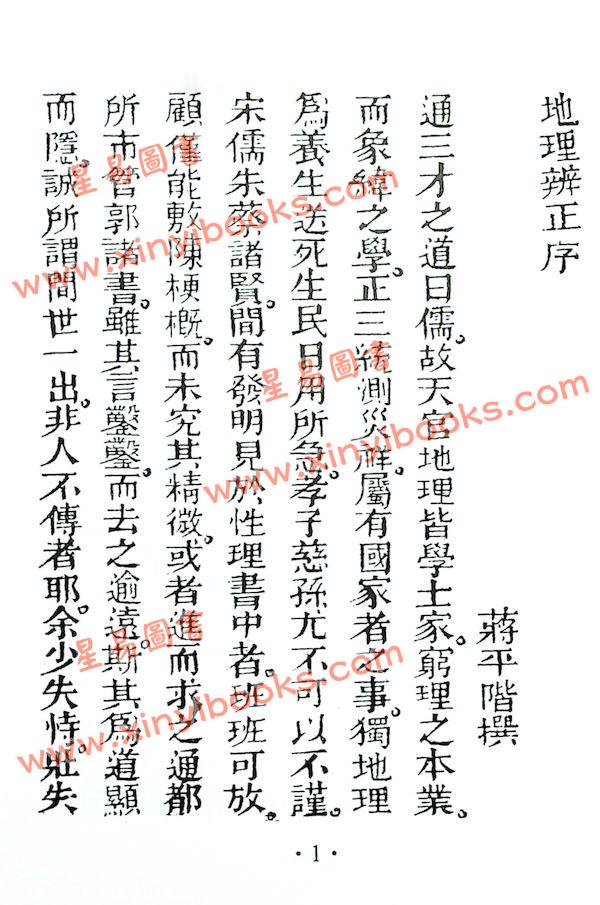 地理辨正序
蔣平階撰
通三才之道曰儒。故天官地理皆學士家。窮理之本業。
而象緯之學。正三統測災祥。屬有國家者之事。獨地理
為養生送死生民日用所急。孝子慈孫尤不可以不謹。
宋儒朱蔡諸賢。間有發明見於性理書中者。班班可放。
顧僅能敷陳梗概。而未究其精微。或者進而求之通都
所市管郭諸書。雖其言鑿鑿。而去之逾遠。斯其為道顯
而隱。誠所謂間世一出。非人不傳者耶。余少失恃。壯失
· 1 ·
星易圖書
www.xinyibooks.com
星易圖書
www.xinyibooks.com
星易圖書
www.xinyibooks.com